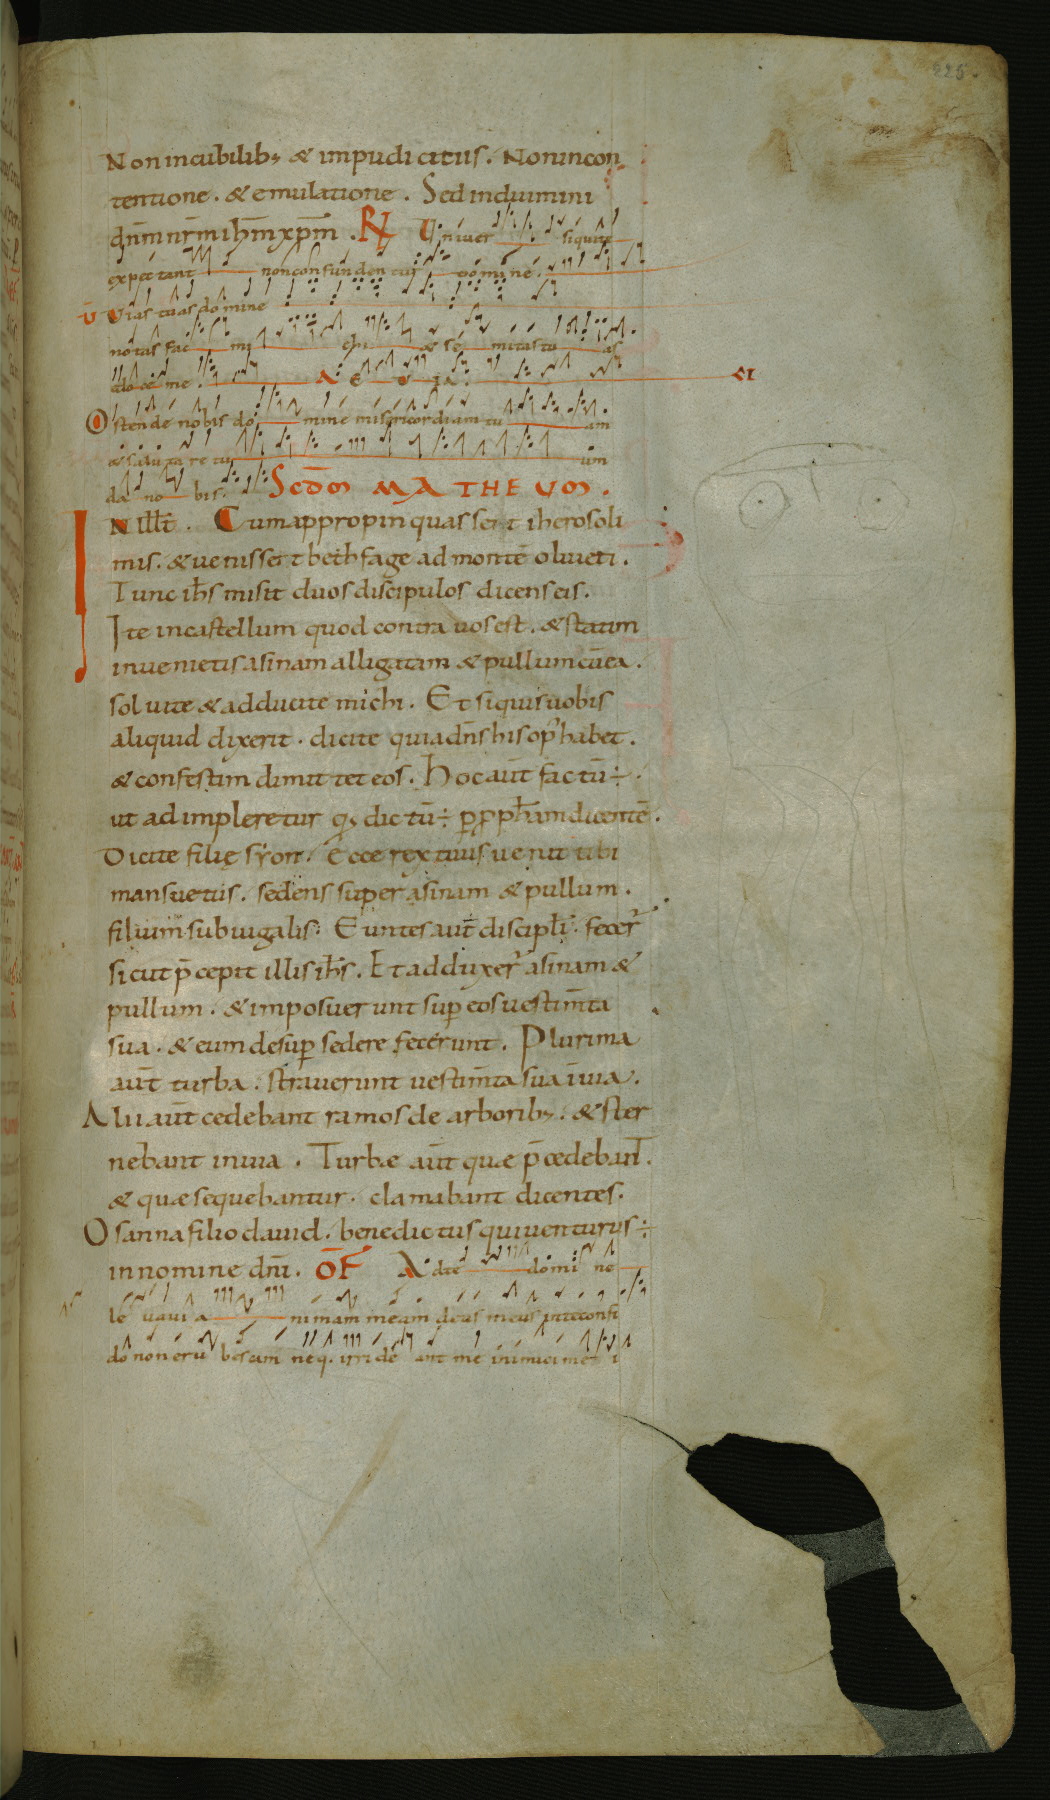 225.
Non in cubilib; & impudicitiis. Non in con
tentione. & emulatione. Sed induimini
dn̄m nr̄m ih̄m xp̄m. R̷ Univer si qui te
expectant non confundentur domine.
V̄ Vias tuas domine
notas fac mi chi & semitas tu as
doce me. A E V IA. CI
Ostende nobis domine misericordiam tu am
& salutare tu um
da nobis. Scdm MATHEUM.
IN illt̄. Cum appropinquasset iherosoli
mis. & venisset bethfage ad montē oliveti.
Tunc ih̄s misit duos discipulos dicens eis.
Ite in castellum quod contra vos est. & statim
invenietis asinam alligatam & pullum cū ea.
solvite & adducite michi. Et siquis vobis
aliquid dixerit. dicite quia dn̄s his op̄ habet.
& confestim dimittet eos. Hoc aūt factū ÷.
ut adimpleretur qd dictū ÷ p pph̄am dicentē.
Dicite filię syon. Ecce rex tuus venit tibi
mansuetus. sedens super asinam & pullum.
filium subiugalis. Euntes aūt discipl̄i. fecer̄
sicut p̄cepit illis ih̄s. Et adduxer̄ asinam &
pullum. & imposuerunt sup eos vestim̄ta
sua. & eum desup sedere fecerunt. Plurima
aūt turba. straverunt vestim̄ta sua ī via.
Alii aūt cedebant ramos de arborib;. & ster
nebant in via. Turbae aūt quae p̄cedebant.
& quae sequebantur. clamabant dicentes.
Osanna filio david. benedictus qui venturus ÷
in nomine dn̄i. OF̄ Ad te domine
levavi animam meam deus meus in te confi
do non erubescam neq. irrideant me inimici mei